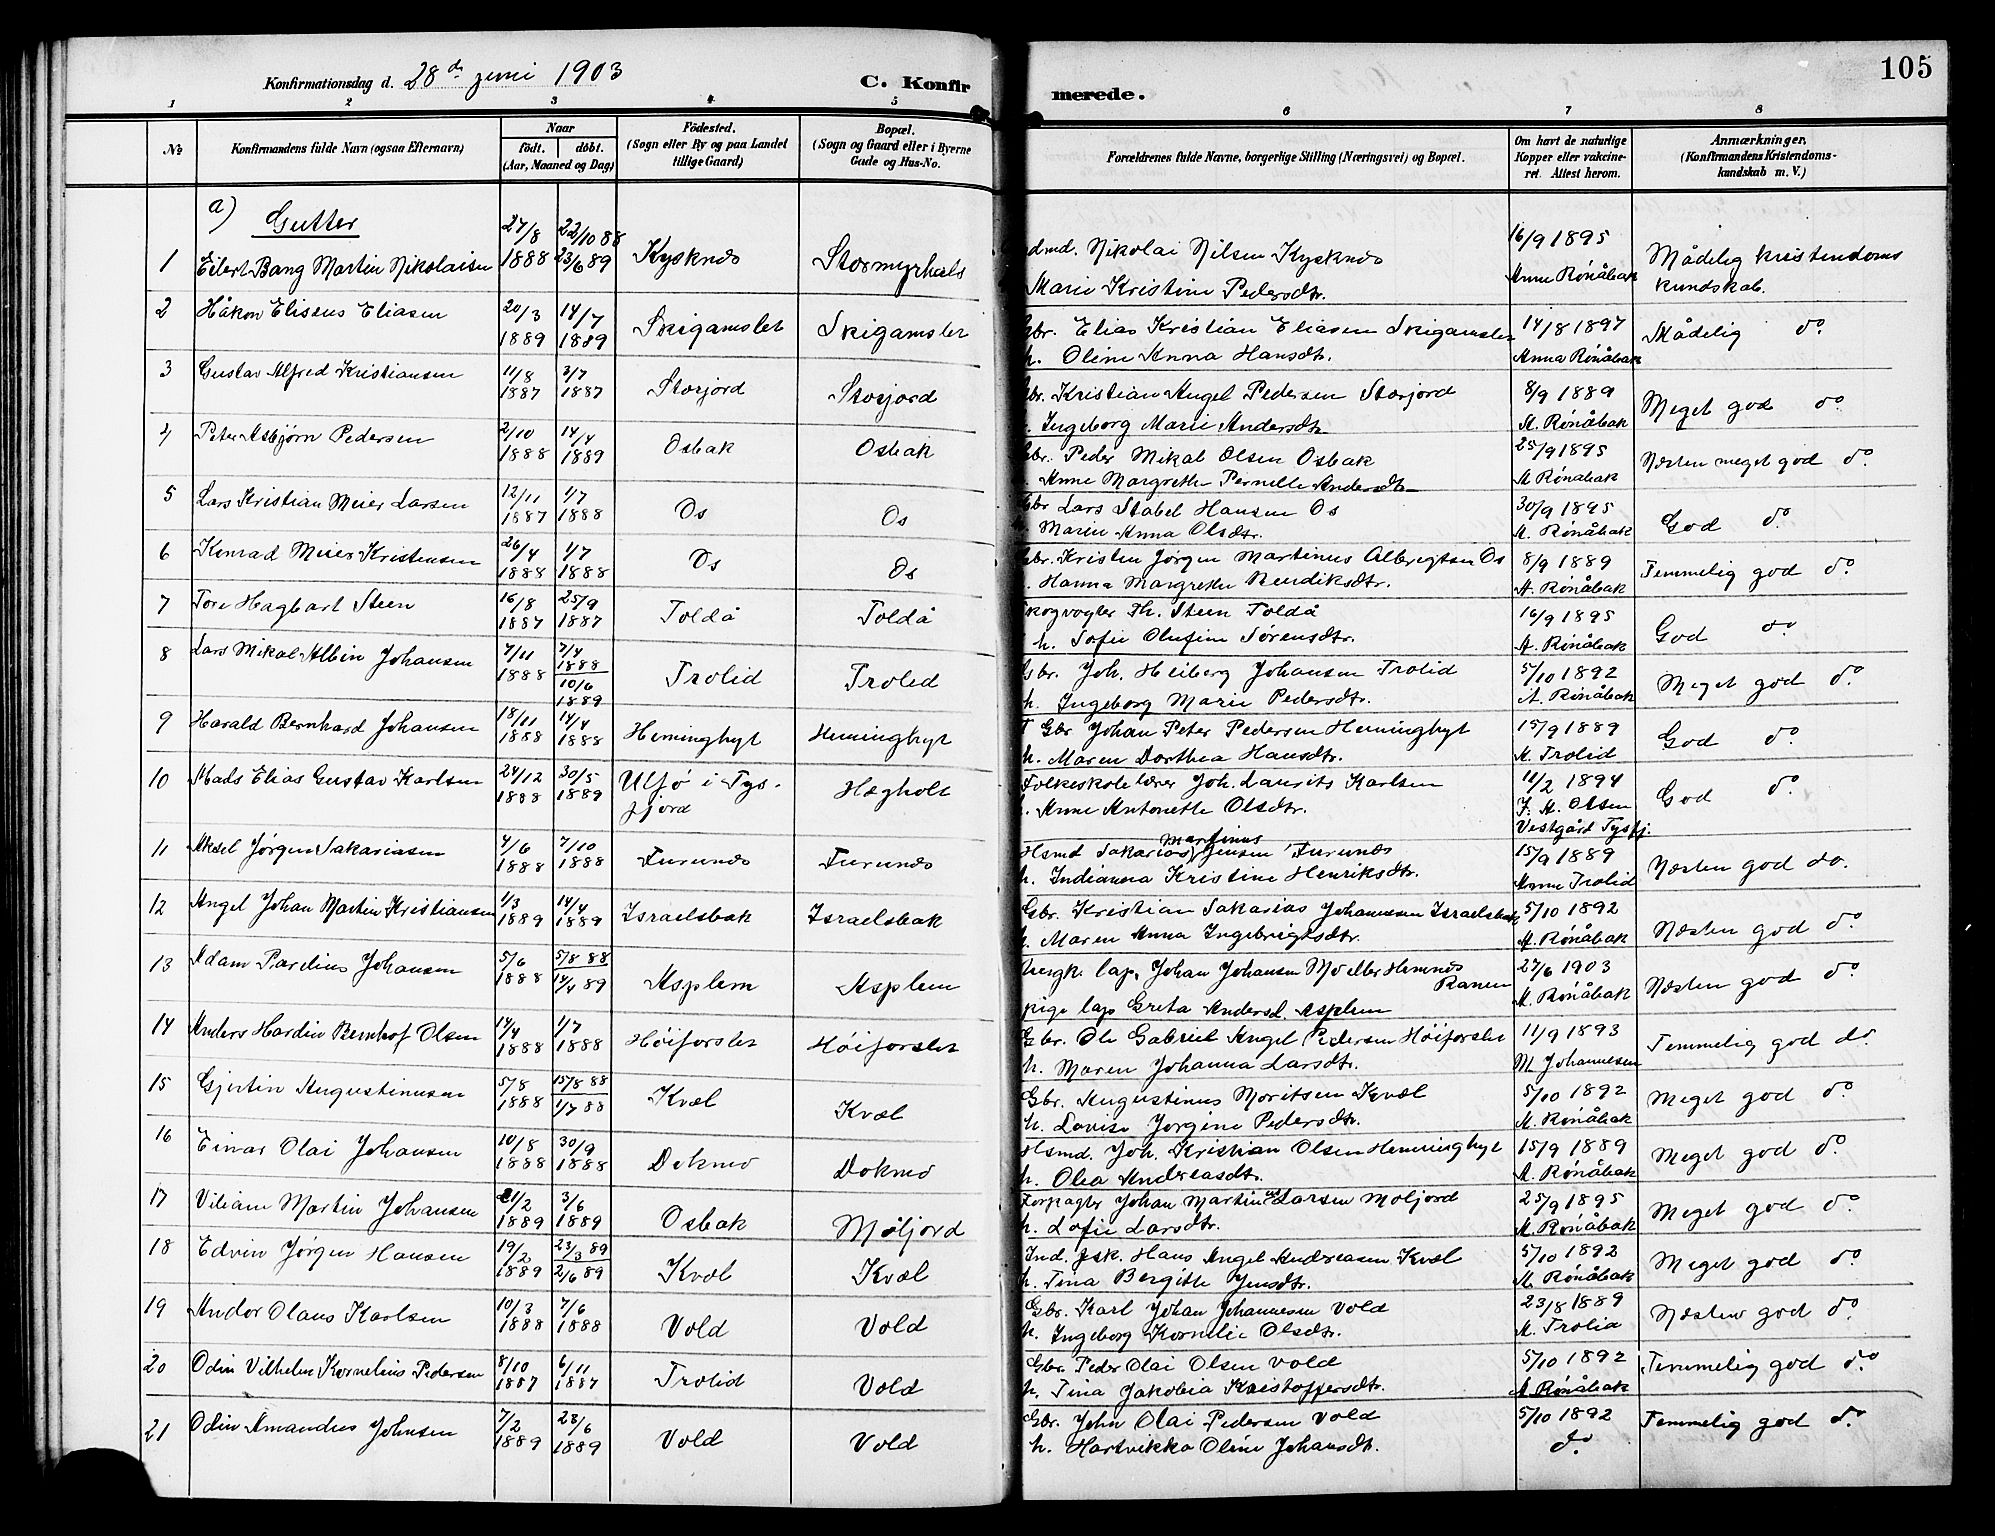 105
Konfirmationsdag d. 28de juni 1903 C. Konfirmerede.
1 2 3 4 5 6 7 8
No. Konfirmandens fulde Navn (ogsaa Efternavn) Naar født. døbt. (Aar, Maaned og Dag) Fødested. (Sogn eller By og paa Landet tillige Gaard) Bopæl. (Sogn og Gaard eller i Byerne Gade og Hus-No. Forældrenes fulde Navne, borgerlige Stilling (Næringsvei) og Bopæl. Om havt de naturlige Kopper eller vakcineret. Attest herom. Anmærkninger. (Konfirmandens Kristendomskundskab m. V.)
a) Gutter
1 Eilert Bang Martin Nikolaisen 27/8 1888 22/10 88 23/6 89 Kysknes Stormyrhals Nikolai Nilsen Kysknes Marie Kristine Pedersdtr. 16/9 1895 Anne Rønåbak Mådelig kristendoms kundskab.
2 Håkon Elisæus Eliasen 20/3 1889 14/7 1889 Skigamslet Skigamslet Gbr. Elias Kristian Eliasen Skigamslet h. Oline Anna Hansdtr. 14/8 1897 Anna Rønåbak Mådelig do.
3 Gustav Alfred Kristiansen 11/8 1887 3/7 1887 Storjord Storjord Gbr. Kristian Angel Pedersen Storjord Ingeborg Marie Andersdtr. 8/9 1889 A. Rønåbak Meget god do.
4 Peter Asbjørn Pedersen 2/10 1888 14/4 1889 Osbak Osbak Gbr. Peder Mikal Olsen Osbak Anne Margrethe Pernille Andersdtr. 25/9 1895 A Rønåbak Næsten meget god do.
5 Lars Kristian Meier Larsen 12/11 1887 1/7 1888 Os Os Gbr Lars Stabel Hansen Os Maren Anna Olsdtr. 30/9 1895 A. Rønåbak God do.
6 Konrad Meier Kristensen 26/4 1888 1/7 1888 Os Os Gbr. Kristen Jørgen Martinus Albregtsen Os Hanna Margrethe Bendiksdtr. 8/9 1889 A. Rønåbak Temmelig god do.
7 Tore Hagbart Steen 16/8 1887 25/9 1887 Toldå Toldå Skogvogter Th. Steen Toldå h. Sofie Olufine Sørensdtr. 16/9 1895 A. Rønåbak God do.
8 Lars Mikal Albin Johansen 7/11 1888 7/4 1888 10/6 1889 Trolid Trolid Gbr. Joh. Heiberg Johansen Trolid h. Ingeborg Marie Pedersdtr. 5/10 1892 A. Rønåbak Meget god do.
9 Harald Bernhard Johansen 18/11 1888 14/4 1888 Hemingbyt Hemingbyt Gbr Johan Peter Pedersen Hemingbyt h. Maren Dorthea Hansdtr. 15/9 1889 A. Trolid God do.
10 Mads Elias Gustav Karlsen 24/12 1888 30/5 1889 Ulfsø i Tysfjord Hægholt Folkeskolelærer Joh. Laurits Karlsen Anne Antonette Olsdtr. 11/2 1894 J. A. Olsen Vestgård Tysfj. God do.
11 Aksel Jørgen Sakariasen 4/6 1888 7/10 1888 Furunes Furunes Hsmd Sakarias Martinus Jensen Furunes h. Indianna Kristine Henriksdtr. 15/9 1889 Anne Trolid Næsten god do.
12 Angel Johan Martin Kristiansen 1/3 1889 14/4 1889 Israelsbak Israelsbak Gbr. Kristian Sakarias Johannesen Israelsbak h. Maren Anna Ingebrigtsdtr. 5/10 1892 A. Rønåbak Næsten god do
13 Adam Parelius Johansen 5/6 1888 5/8 88 14/4 89 Asplem Asplem lap, Johan Johansen Mo eller Hemnes Ranen pige lap Greta Andersd. Asplem 27/6 1903 A. Rønåbak Næsten god do
14 Anders Hardin Bernhof Olsen 14/4 1888 1/7 1888 Høiforslet Høiforslet Gbr. Ole Gabriel Angel Pedersen Høiforslet h. Maren Johanna Larsdtr. 11/9 1893 M Johannesen Temmelig god do.
15 Gjertin Augustinusen 5/8 1888 15/8 88 1/7 88 Kvæl Kvæl Gbr. Augustinus Moritsen Kvæl h. Lovise Jørgine Pedersdtr. 5/10 1892 A. Rønåbak Meget god do
16 Einar Olai Johansen 10/8 1888 30/9 1888 Dokmo Dokmo Hsmd. Joh. Kristian Olsen Hemingbyt h. Olea Andreasdtr. 15/9 1889 A. Rønåbak Meget god do.
17 Viliam Martin Johansen 21/2 1889 3/6 1889 Osbak Moljord Forpagter Johan Martinus Larsen Moljord h. Sofie Larsdtr. 25/9 1895 A. Rønåbak Meget god do
18 Edvin Jørgen Hansen 19/2 1889 23/3 89 2/6 89 Kvæl Kvæl Ind. fsk. Hans Angel Andreasen Kvæl h. Tina Bergitte Jensdtr. 5/10 1892 A. Rønåbak Meget god do
19 Andor Olaus Karlsen 10/3 1888 7/6 1888 Vold Vold Gbr. Karl Johan Johannesen Vold h. Ingeborg Kornelie Olsdtr. 23/8 1889 A. Trolid Næsten god do
20 Odin Vilhelm Kornelius Pedersen 8/10 1887 6/11 1887 Trolid Vold Gbr. Peder Olai Olsen Vold h. Tina Jakobia Kristoffersdtr. 5/10 1892 A Rønåbak Temmelig god do.
21 Odin Amandus Johnsen 7/2 1889 23/6 1889 Vold Vold Gbr. John Olai Pedersen Vold h. Hartvikka Oline Johansdtr. 5/10 1892 do. Temmelig god do.